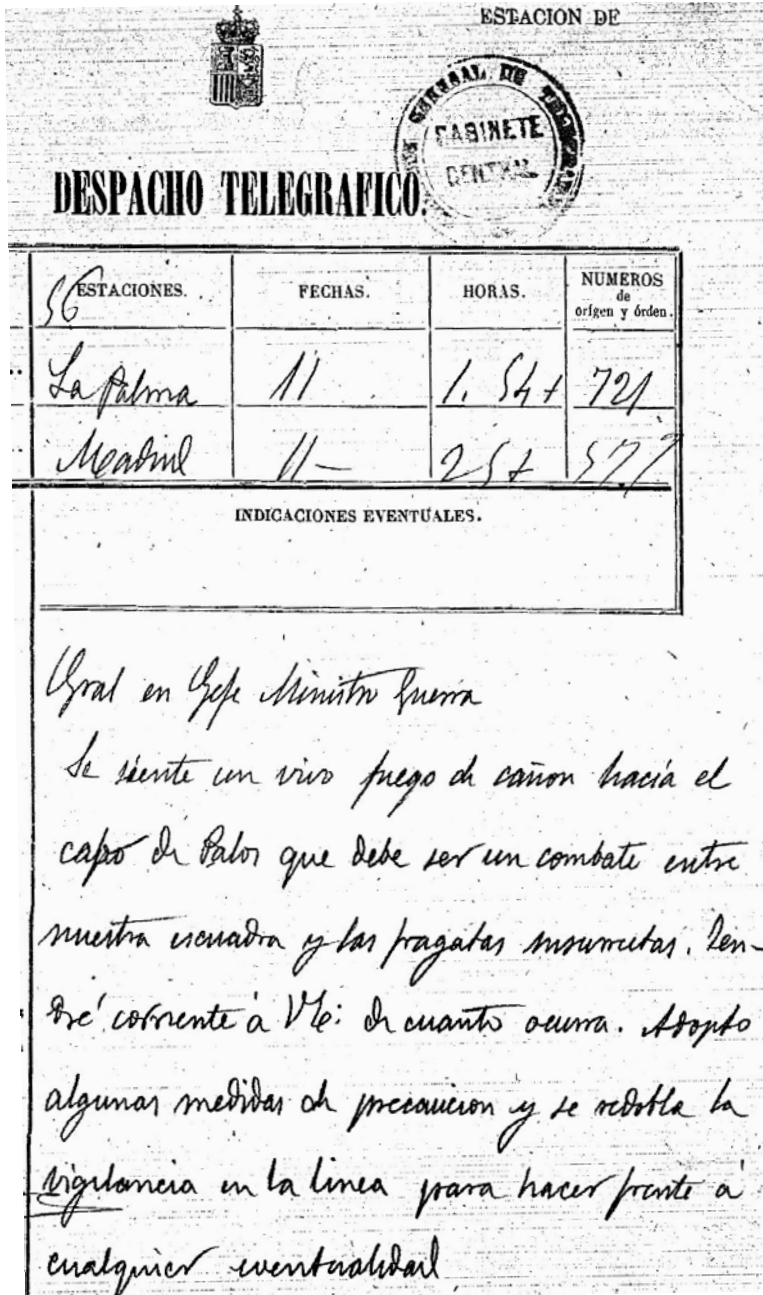 ESTACION DE
GENERAL DE
GABINETE
CENTRAL
DESPACHO TELEGRAFICO.
56
ESTACIONES. FECHAS. HORAS. NUMEROS
de
orígen y órden.
La Palma 11 1. 54 t 721
Madrid 11— 2 5 t 577
INDICACIONES EVENTUALES.
Gral en Gefe Ministro Guerra
Se siente un vivo fuego de cañon hacia el
cabo de Palos que debe ser un combate entre
nuestra escuadra y las fragatas insurrectas. Ten-
dré corriente á VE: de cuanto ocurra. Adopto
algunas medidas de precaucion y se redobla la
vigilancia en la linea para hacer frente á
cualquier eventualidad